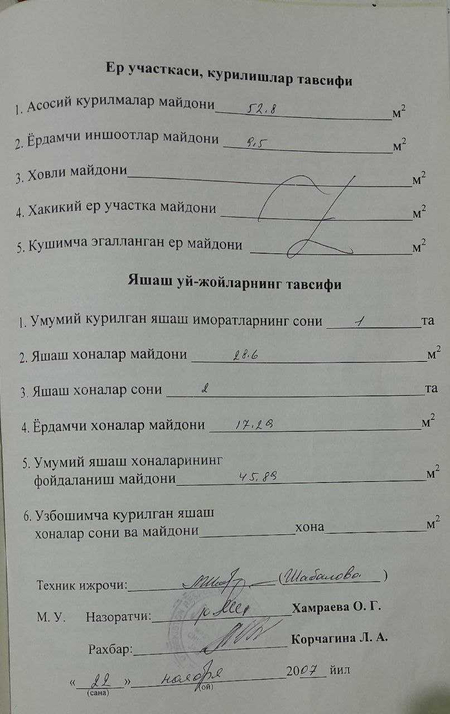 Ер участкаси, курилишлар тавсифи
1. Асосий курилмалар майдони 52,8 м2
2. Ёрдамчи иншоотлар майдони 9,5 м2
3. Ховли майдони м2
4. Хакикий ер участка майдони м2
5. Кушимча эгалланган ер майдони м2
Яшаш уй-жойларнинг тавсифи
1. Умумий курилган яшаш иморатларнинг сони 1 та
2. Яшаш хоналар майдони 28.6 м2
3. Яшаш хоналар сони 2 та
4. Ёрдамчи хоналар майдони 17.29 м2
5. Умумий яшаш хоналарининг
фойдаланиш майдони 45,89 м2
6. Узбошимча курилган яшаш
хоналар сони ва майдони хона м2
Техник ижрочи: (Шабалова)
М. У. Назоратчи: Хамраева О. Г.
Рахбар: Корчагина Л. А.
« 22 » ноября 2007 йил
(сана) (ой)